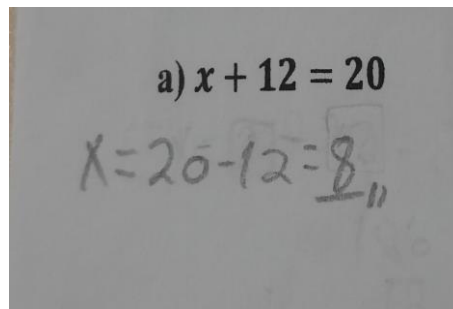 a) x + 12 = 20
x = 20 - 12 = 8